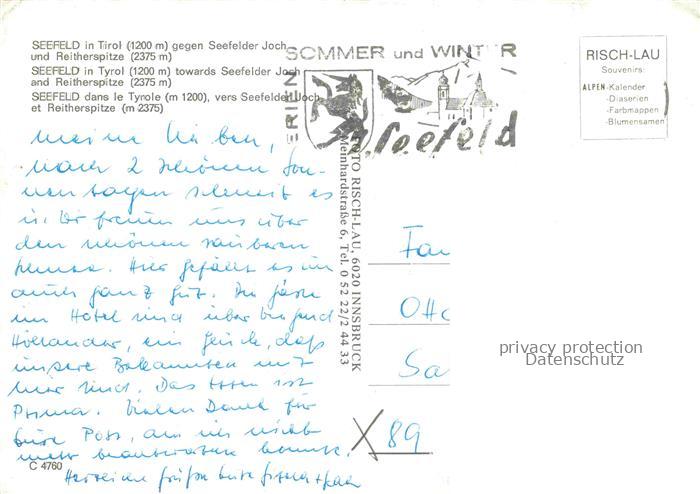 SEEFELD in Tirol (1200 m) gegen Seefelder Joch
und Reitherspitze (2375 m)
SEEFELD in Tyrol (1200 m) towards Seefelder Joch
and Reitherspitze (2375 m)
SEEFELD dans le Tyrole (m 1200), vers Seefelder Joch
et Reitherspitze (m 2375)
SOMMER und WINTER
Seefeld
RISCH-LAU
Souvenirs:
ALPEN-Kalender
-Diaserien
-Farbmappen
-Blumensamen
FOTO RISCH-LAU, 6020 INNSBRUCK
Meinhardstraße 6, Tel. 0 52 22/2 44 33
Meine Lieben,
nach 2 schönen Son-
nentagen schneit es
u. wir freuen uns über
den schönen sauberen
Schnee. Hier gefällt es uns
auch ganz gut. Die Gäste
im Hotel sind überwiegend
Holländer, ein Glück, daß
unsere Bekannten mit
hier sind. Das Essen ist
Prima. Vielen Dank für
Eure Post, am ich nicht
mehr beantworten konnte.
Herzliche Grüße Eure
Fam
Otto
Sa
X 89
privacy protection
Datenschutz
C 4760